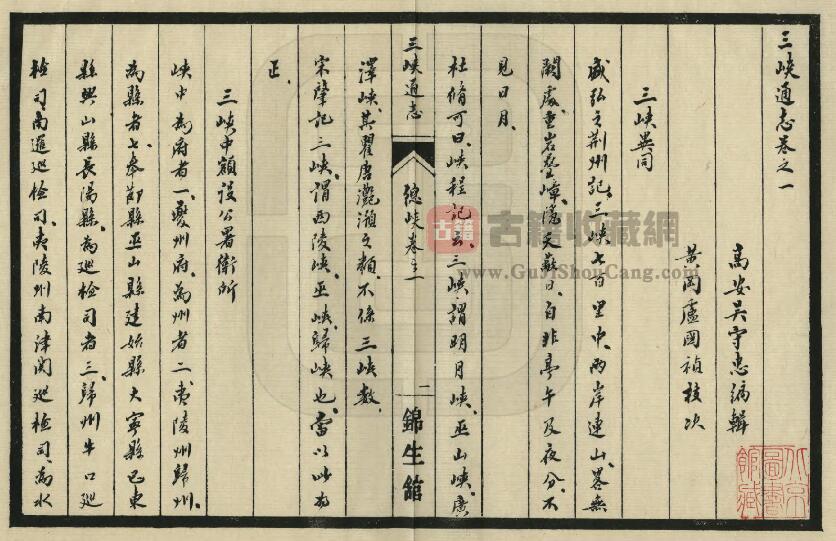 三峽通志卷之一
高安吳守忠編輯
黃岡盧國禎校次
三峽異同
盛弘之荆州記、三峽七百里中、兩岸連山、畧無
闕處、重岩疊嶂、隱天蔽日、自非亭午及夜分、不
見日月、
杜脩可曰、峽程記云、三峽、謂明月峽、巫山峽、廣
三峽通志 總峽卷之一 二 錦生館
澤峽、其瞿唐灔澦之類、不係三峽數、
宋肇記三峽、謂西陵峽、巫峽、歸峽也、當以此為
正、
三峽中額設公署衛所
峽中為府者一、夔州府、為州者二、夷陵州歸州、
為縣者七、奉節縣巫山縣建始縣大寧縣巴東
縣興山縣長陽縣、為巡檢司者三、歸州牛口巡
檢司、南邏巡檢司、夷陵州南津関巡檢司、為水
北京圖書館藏
古籍 古籍收藏網
www.GuJiShouCang.com